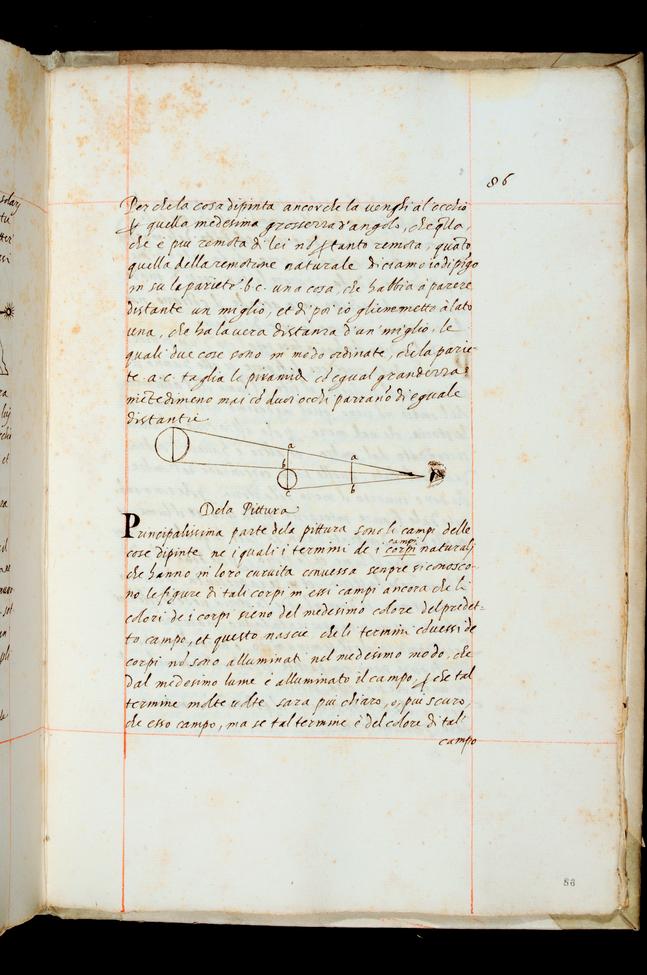 86
Per che la cosa dipinta ancor che la venghi al'occhio
quella medesima grosserza d'angolo, che qlla,
che è piu remota di lei nō tanto remota, quāto
quella della remotione naturale diciamo io dipīgo
in su le pariete b c una cosa, che habbia à parere
distante un miglio, et di poi io gliene metto à lato
una, che ha la vera distanza d'un miglio, le
quali due cose sono in modo ordinate, che la parie-
te .a.c. taglia le piramid cō equal grandezza:
mētedimeno mai cō duoi occhi parrano di eguale
distantie
a
a
b
c
b
Dela Pittura
Principalissima parte dela pittura sono li campi delle
cose dipinte ne i quali i termini de i corpi naturali
campi
che hanno in loro curvita convessa senpre si conosco-
no le figure di tali corpi in essi campi ancora che li
colori de i corpi sieno del medesimo colore del predet-
to campo, et questo nascie che li termini cōvessi de
corpi nō sono alluminati nel medesimo modo, che
dal medesimo lume è alluminato il campo, che tal
termine molte volte sara piu chiaro, o, piu scuro,
che esso campo, ma se tal termine è del colore di tal
campo
86